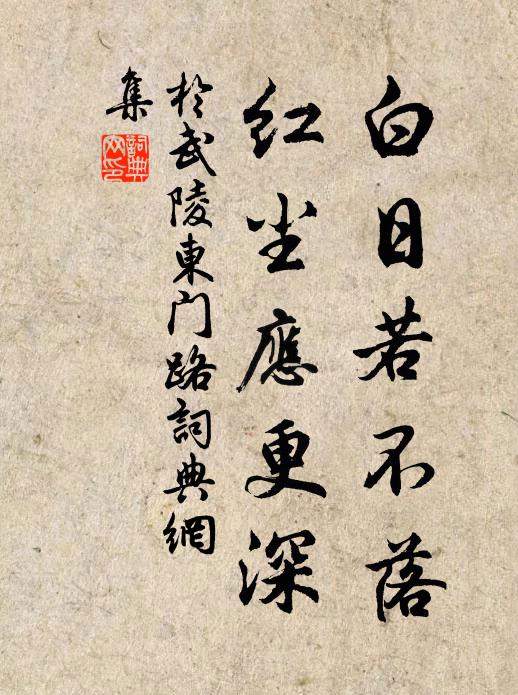 白日若不落
红尘應更深
於武陵東门路詞典網
集
詞典网印